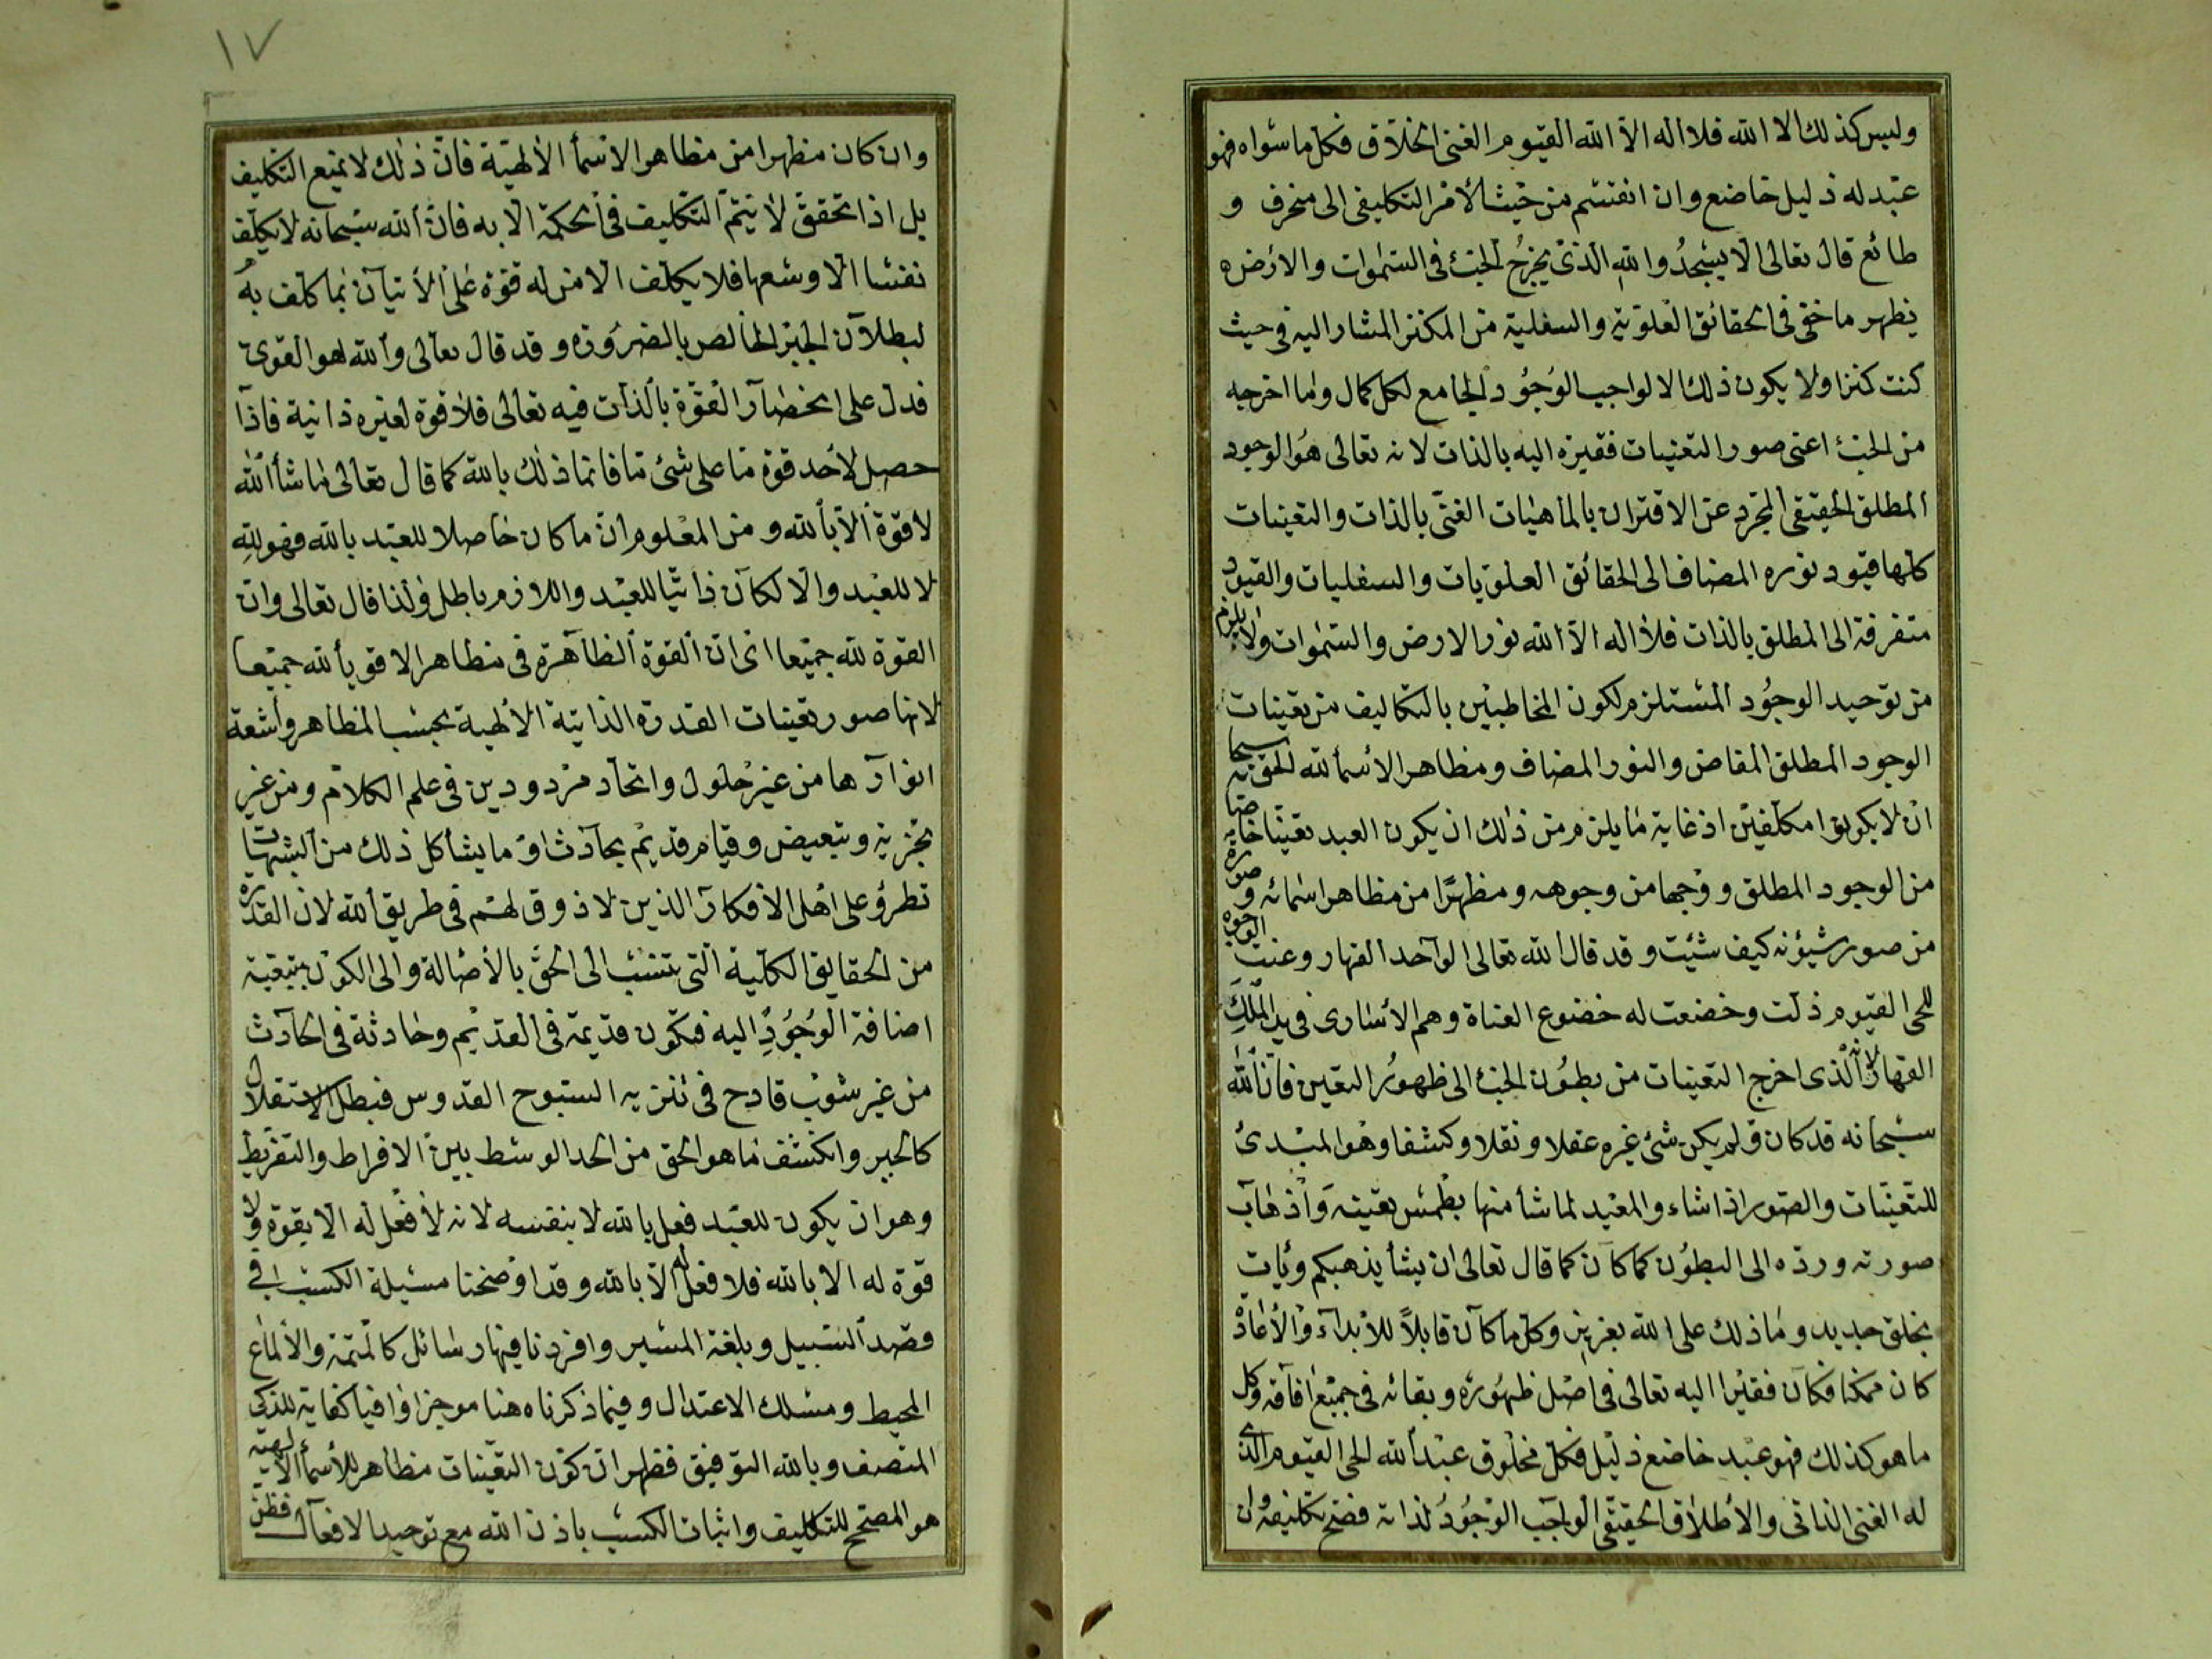 وليس كذلك الا الله فلا اله الا الله القيوم الغنى الخلاق فكل ما سواه فهو
عبد له ذليل خاضع وان انقسم من حيث الامر التكليفى الى منحرف و
طائع قال تعالى الا يسجدوا لله الذى يخرج الخبء فى السموات والارض
يظهر ما خفى فى الحقائق العلوية والسفلية من المكنز المشار اليه فى حيث
كنت كنزا ولا يكون ذلك الا لواجب الوجود الجامع لكل كمال وما اخرجه
من الخبء اعنى صور التعينات فقيرة اليه بالذات لانه تعالى هو الوجود
المطلق الحقيقى المجرد عن الاقتران بالماهيات الغنى بالذات والتعينات
كلها قيود نوره المضاف الى الحقائق العلويات والسفليات والقيود
متفرقة الى المطلق بالذات فلا اله الا الله نور الارض والسموات ولا يلزم
من توحيد الوجود المستلزم لكون المخاطبين بالتكاليف من تعينات
الوجود المطلق المفاض والنور المضاف ومظاهر الاسماء لله الحق سبحانه
ان لا يكونوا مكلفين اذ غاية ما يلزم من ذلك ان يكون العبد تعينا خاصا
من الوجود المطلق ووجها من وجوهه ومظهرا من مظاهر اسمائه وصورة
من صور شيؤنه كيف شئت وقد قال الله تعالى الواحد القهار وعنت الوجوه
للحى القيوم ذلت وخضعت له خضوع العناة وهم الاسارى فى يد الملك
القهار لانه الذى اخرج التعينات من بطون الخبء الى ظهور التعين فان الله
سبحانه قد كان ولم يكن شئ غيره عقلا ونقلا وكشفا وهو المبدئ
للتعينات والصور اذا شاء والمعيد لما شأ منها بطمس تعينه واذهاب
صورته ورده الى البطون كما كان كما قال تعالى ان يشأ يذهبكم ويأت
بخلق جديد وما ذلك على الله بعزيز وكل ما كان قابلا للابداء والاعادة
كان ممكنا فكان فقيرا اليه تعالى فى اصل ظهوره وبقائه فى جميع افاقه وكل
ما هو كذلك فهو عبد خاضع ذليل فكل مخلوق عبد الله الحى القيوم الذى
له الغنى الذاتى والاطلاق الحقيقى الواجب الوجود لذاته فصح تكليفه وان
١٧
وان كان مظهرا من مظاهر الاسمأ الالهية فان ذلك لا يمنع التكليف
بل اذا تحقق لا يتم التكليف فى الحكمة الا به فان الله سبحانه لا يكلف
نفسا الا وسعها فلا يكلف الا من له قوة على الاتيان بما كلف به
لبطلان الجبر الخالص بالضرورة وقد قال تعالى والله هو القوى
فدل على انحصار القوة بالذات فيه تعالى فلا قوة لغيره ذاتية فاذا
حصل لاحد قوة ما على شئ ما فانما ذلك بالله كما قال تعالى ما شأ الله
لا قوة الا بالله ومن المعلوم ان ما كان حاصلا للعبد بالله فهو لله
لا للعبد والا لكان ذاتيا للعبد واللازم باطل ولذا قال تعالى وان
القوة لله جميعا اى ان القوة الظاهرة فى مظاهر الاقويأ لله جميعا
لانها صور تعينات القدرة الذاتية الالهية بحسب المظاهر واشعة
انوارها من غير حلول واتحاد مردودين فى علم الكلام ومن غير
تجزية وتبعيض وقيام قديم بحادث او ما يشاكل ذلك من الشبهات
تطرؤ على اهل الافكار الذين لا ذوق لهم فى طريق الله لان القدرة
من الحقايق الكلية التى تنسب الى الحق بالاصالة والى الكون بتبعية
اضافة الوجود اليه فتكون قديمة فى القديم وحادثة فى الحادث
من غير شوب قادح فى تنزيه السبوح القدوس فبطل الاستقلال
كالجبر وانكشف ما هو الحق من الحد الوسط بين الافراط والتفريط
وهو ان يكون للعبد فعل بالله لا بنفسه لانه لا فعل له الا بقوة ولا
قوة له الا بالله فلا فعل له الا بالله وقد اوضحنا مسئلة الكسب فى
قصد السبيل وبلغة المسير وافردنا فيها رسائل كالمتمة والالماع
المحيط ومسلك الاعتدال وفيما ذكرناه هنا موجزا وافيا كفاية للذكى
المنصف وبالله التوفيق فظهر ان كون التعينات مظاهر للاسمأ الالهية
هو المصحح للتكليف واثبات الكسب باذن الله مع توحيد الافعال فظن